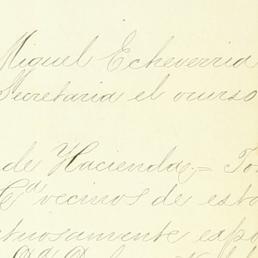 Miguel Echeverria
Secretaria el ocurso
de Hacienda.= To
Cª vecinos de esta
tuosamente expo